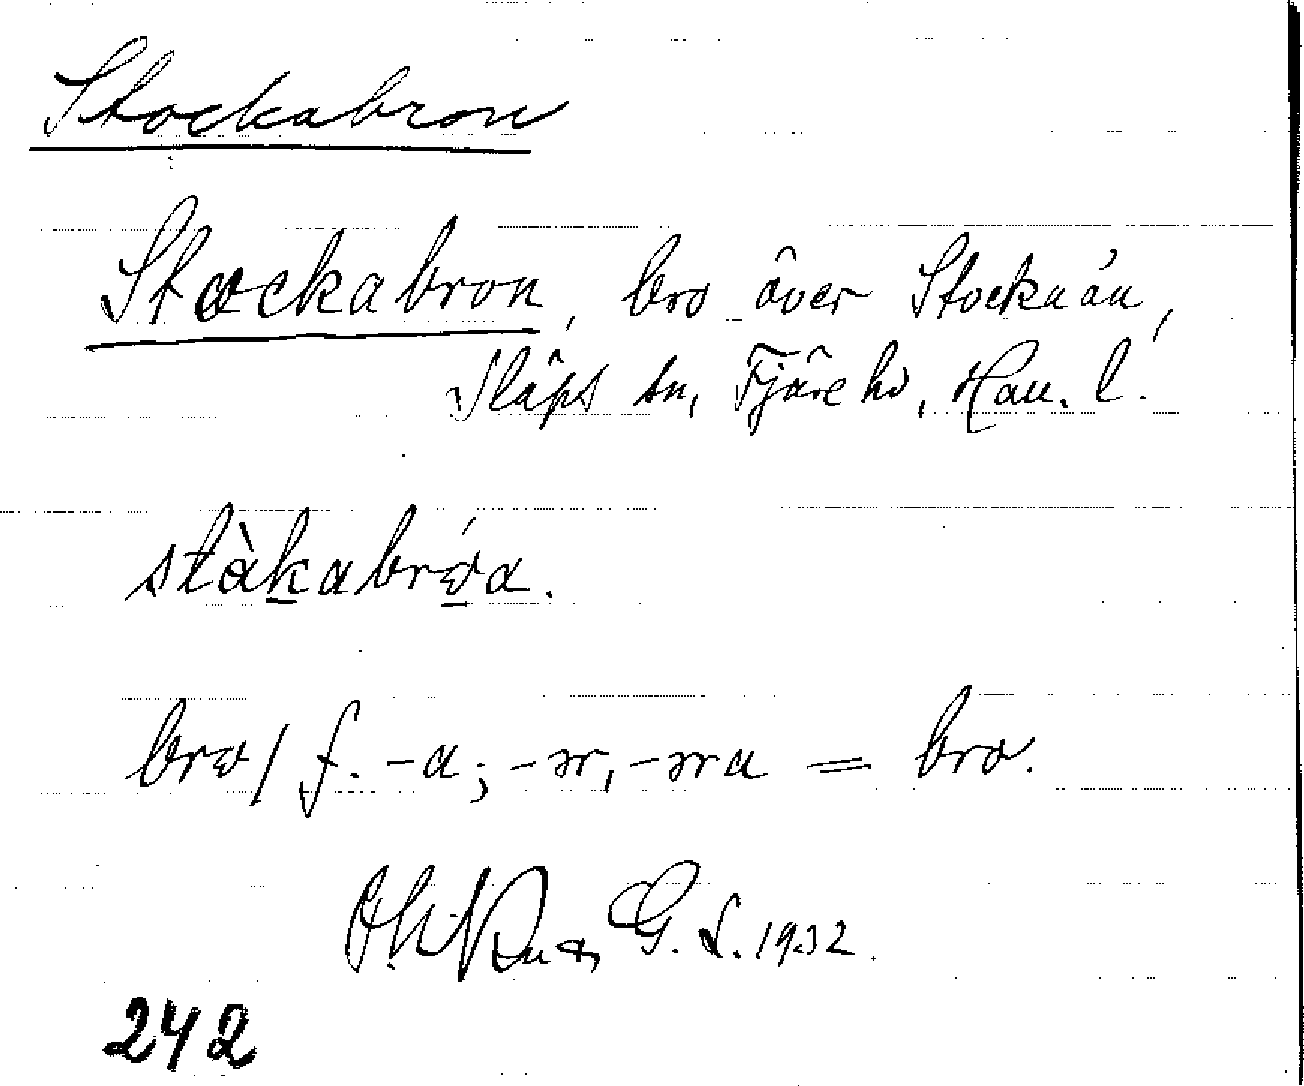 Stockabron
Stockabron, bro över Stockaån,
Släps sn, Fjäre hd, Hall. l.
stàkabrẃa.
brω/ f. -a; -ər, -əra = bro.
G. L. 1932.
242